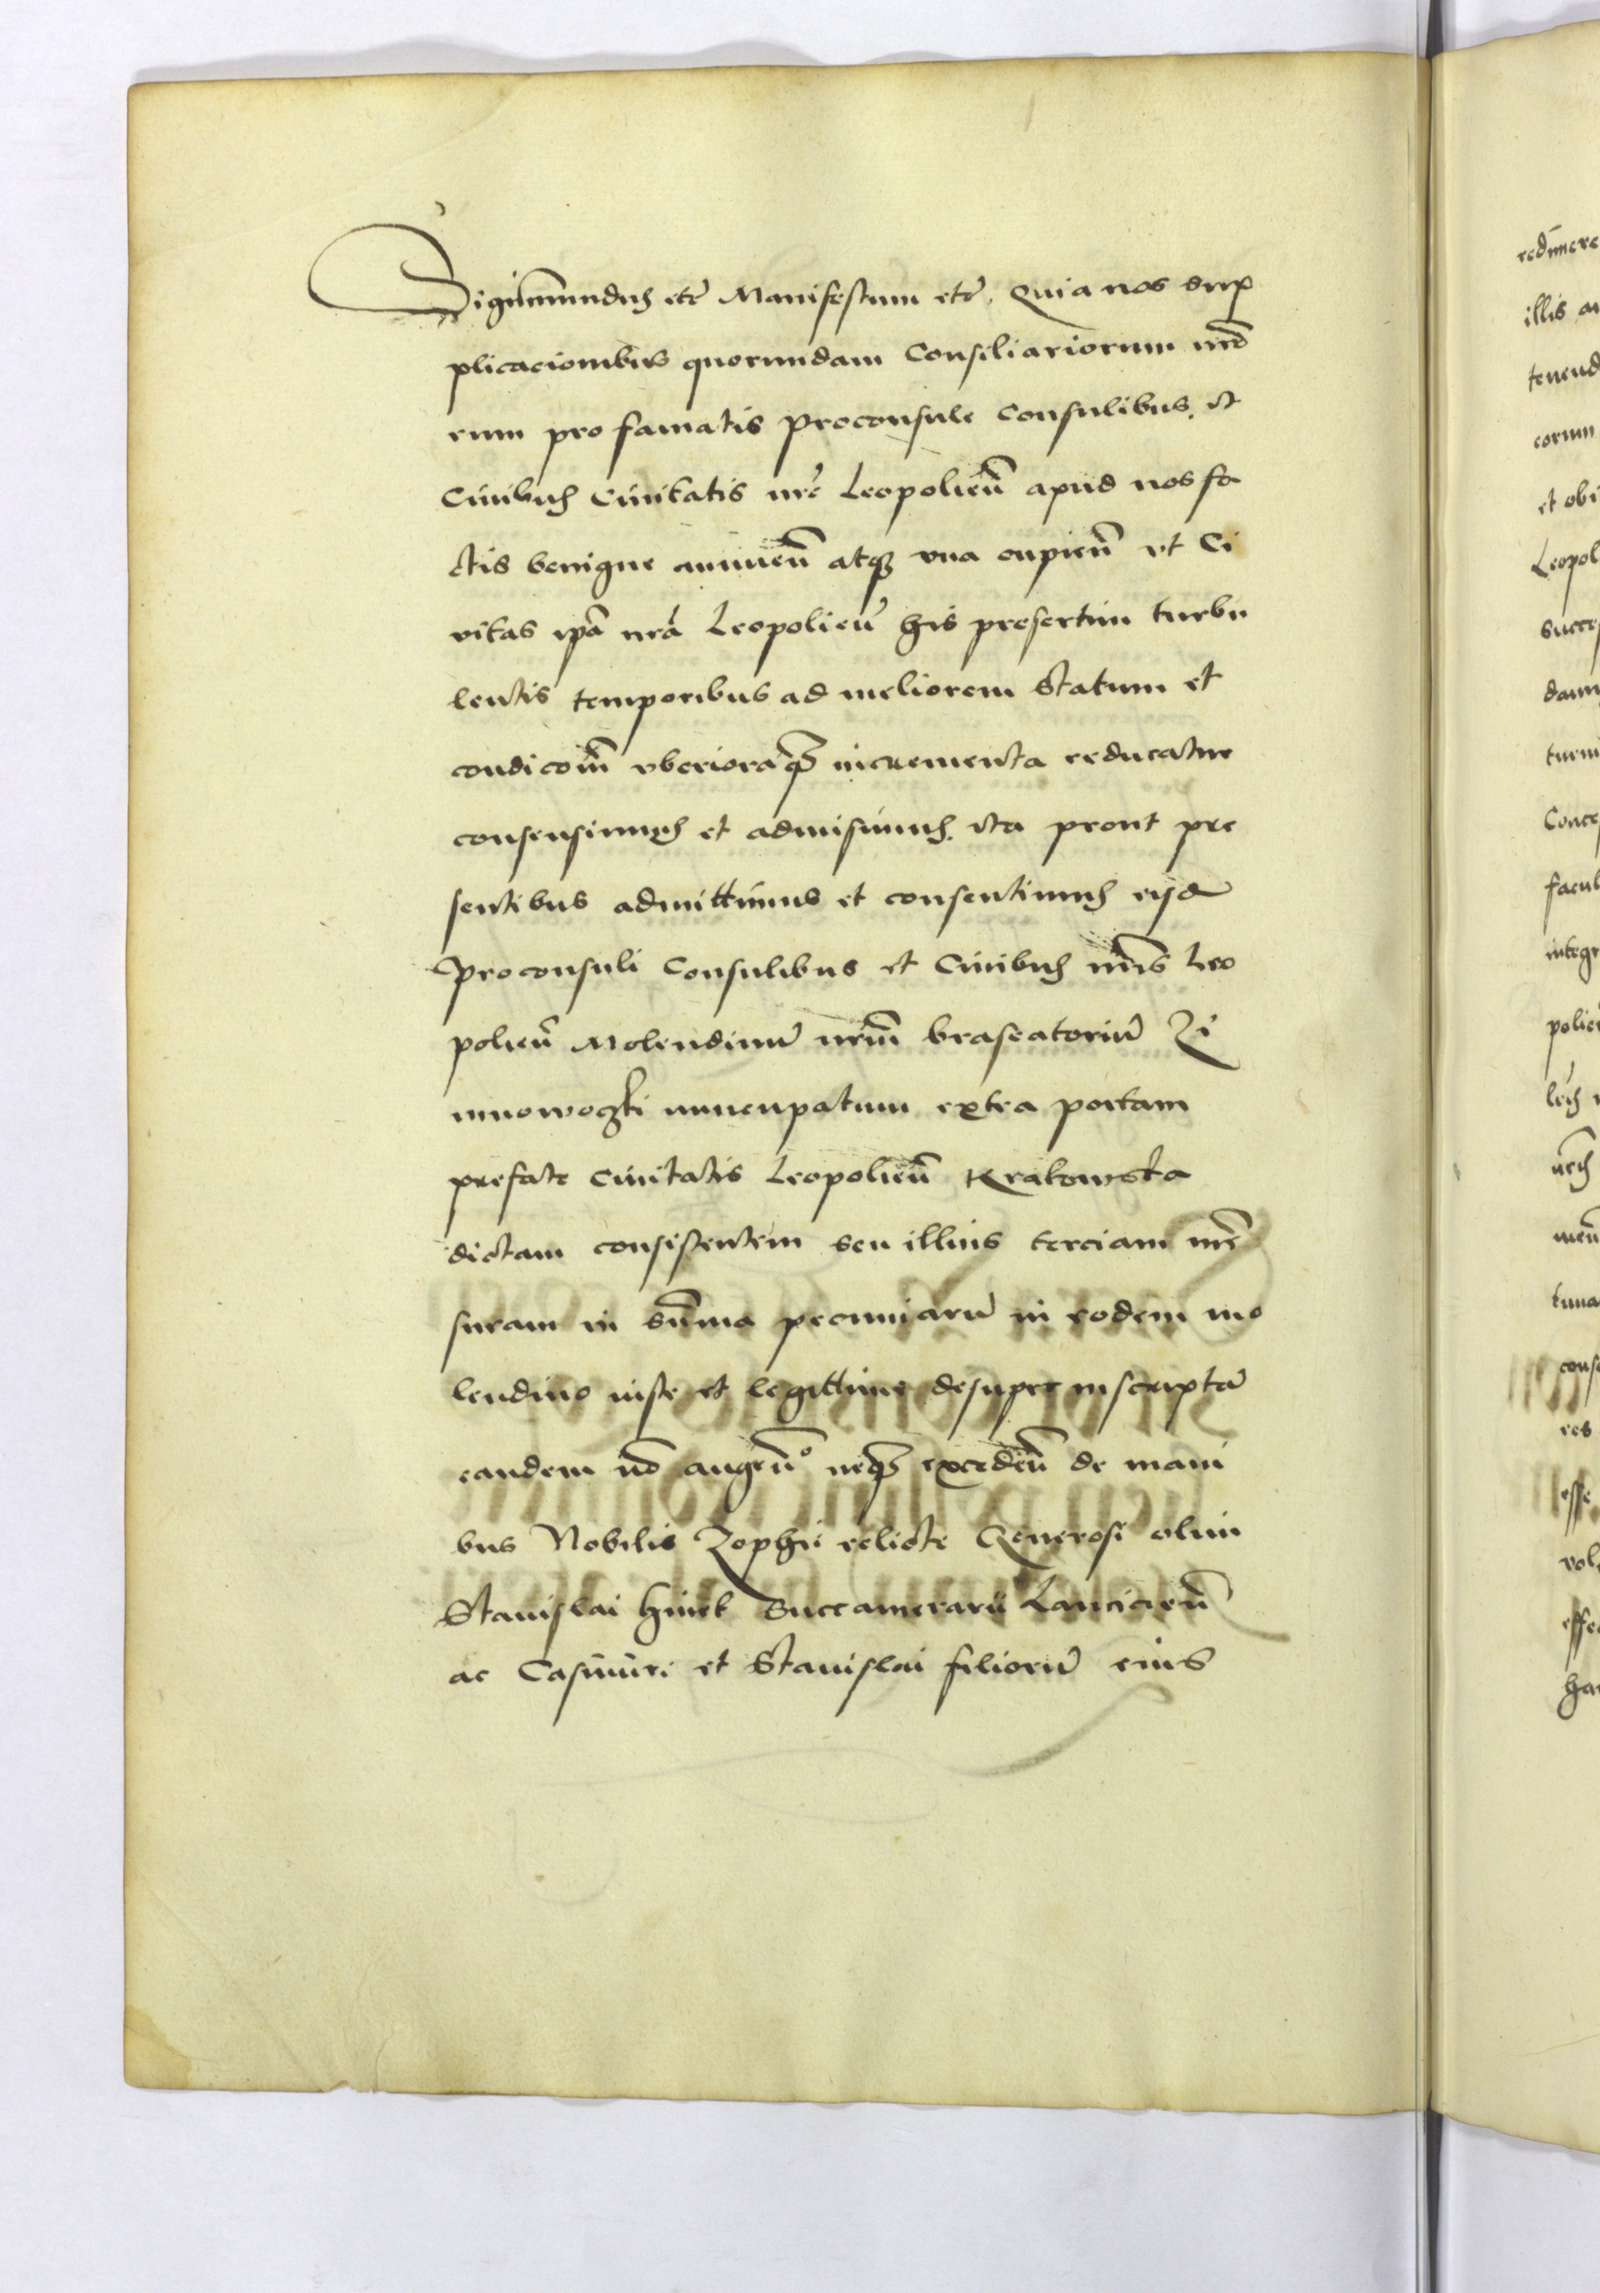 Sigismundus etc̃ Manifestum etc̃. Quia nos sup
plicacionibus quorundam Consiliariorum nrõ
rum pro famatis Proconsule Consulibus et
Ciuibus Ciuitatis nrẽ Leopolieñ apud nos fa
ctis benigne annueñ atq; vna cupieñ vt Ci
vitas ipã nrã Leopolieñ his presertim turbu
lentis temporibus ad meliorem statum et
condicoẽm vberioraq; incrementa reducatur
consensimus et admisimus ita prout pre
sentibus admittimus et consentimus eisd
Proconsuli Consulibus et Ciuibus nris Leo
polieñ Molendinũ nrũm braseatoriũ Zi
mnowoczki nuncupatum extra portam
prefate Ciuitatis Leopolieñ Krakowska
dictam consistentem seu illius terciam men
suram in sũma pecuniarũ in eodem mo
lendino iuste et legittime desuper inscriptã
eandem nõ augeñ neq; excedeñ de mani
bus Nobilis Zophie relicte Generosi olim
Stanislai Succamerarii Lancicieñ
ac Casimiri et Stanislai filiorũ eius
redimere
illis
tenend
corum
et obi
Leopol
succe
turni
Conce
facul
integr
policñ
cons
res
esse
effe